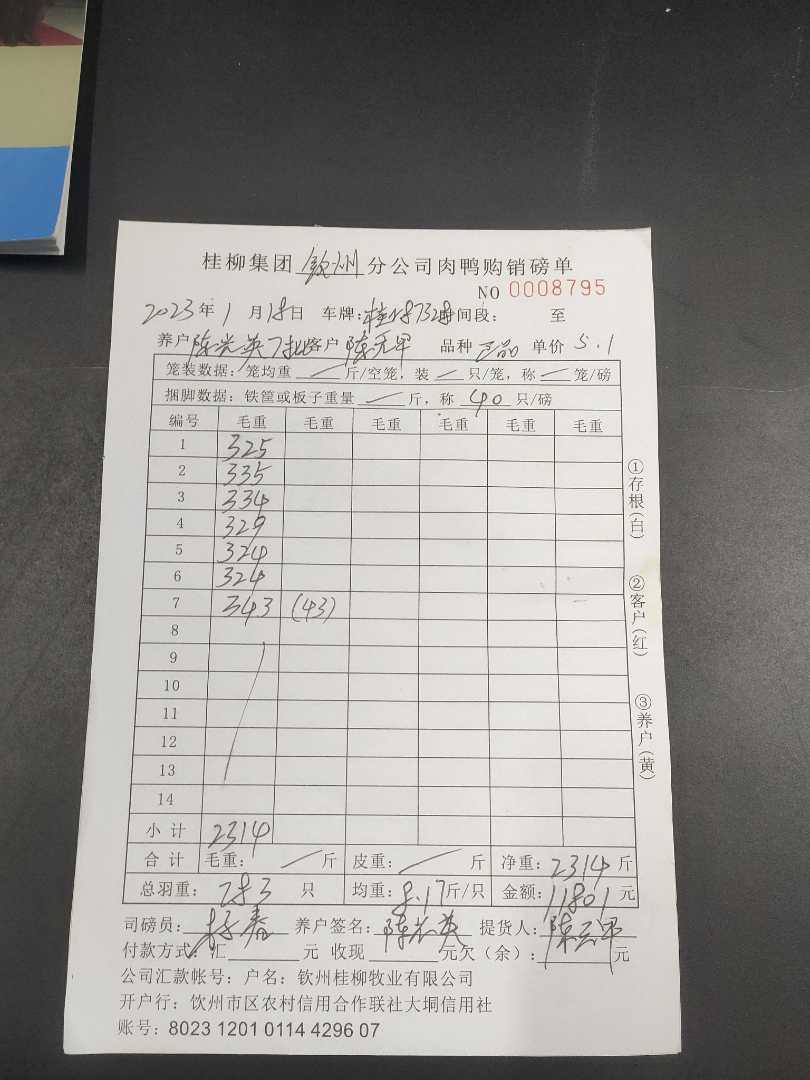 桂柳集团 钦州 分公司肉鸭购销磅单
NO 0008795
2023年 1 月 18 日 车牌: 桂 732 时间段: 至
养户 陈光英 7批 客户 陈元军 品种 正品 单价 5.1
笼装数据: 笼均重 / 斤/空笼, 装 / 只/笼, 称 / 笼/磅
捆脚数据: 铁筐或板子重量 / 斤, 称 40 只/磅
编号 毛重 毛重 毛重 毛重 毛重 毛重
1 325
2 335
3 334
4 329
5 324
6 324
7 343 (43)
8
9
10
11
12
13
14
小计 2314
合计 毛重: / 斤 皮重: / 斤 净重: 2314 斤
总羽重: 283 只 均重: 8.17 斤/只 金额: 11801 元
司磅员: 春 养户签名: 陈光英 提货人: 陈元军
付款方式: 汇 元 收现 元欠(余): 元
公司汇款帐号: 户名: 钦州桂柳牧业有限公司
开户行: 钦州市区农村信用合作联社大垌信用社
账号: 8023 1201 0114 4296 07
①存根(白)
②客户(红)
③养户(黄)